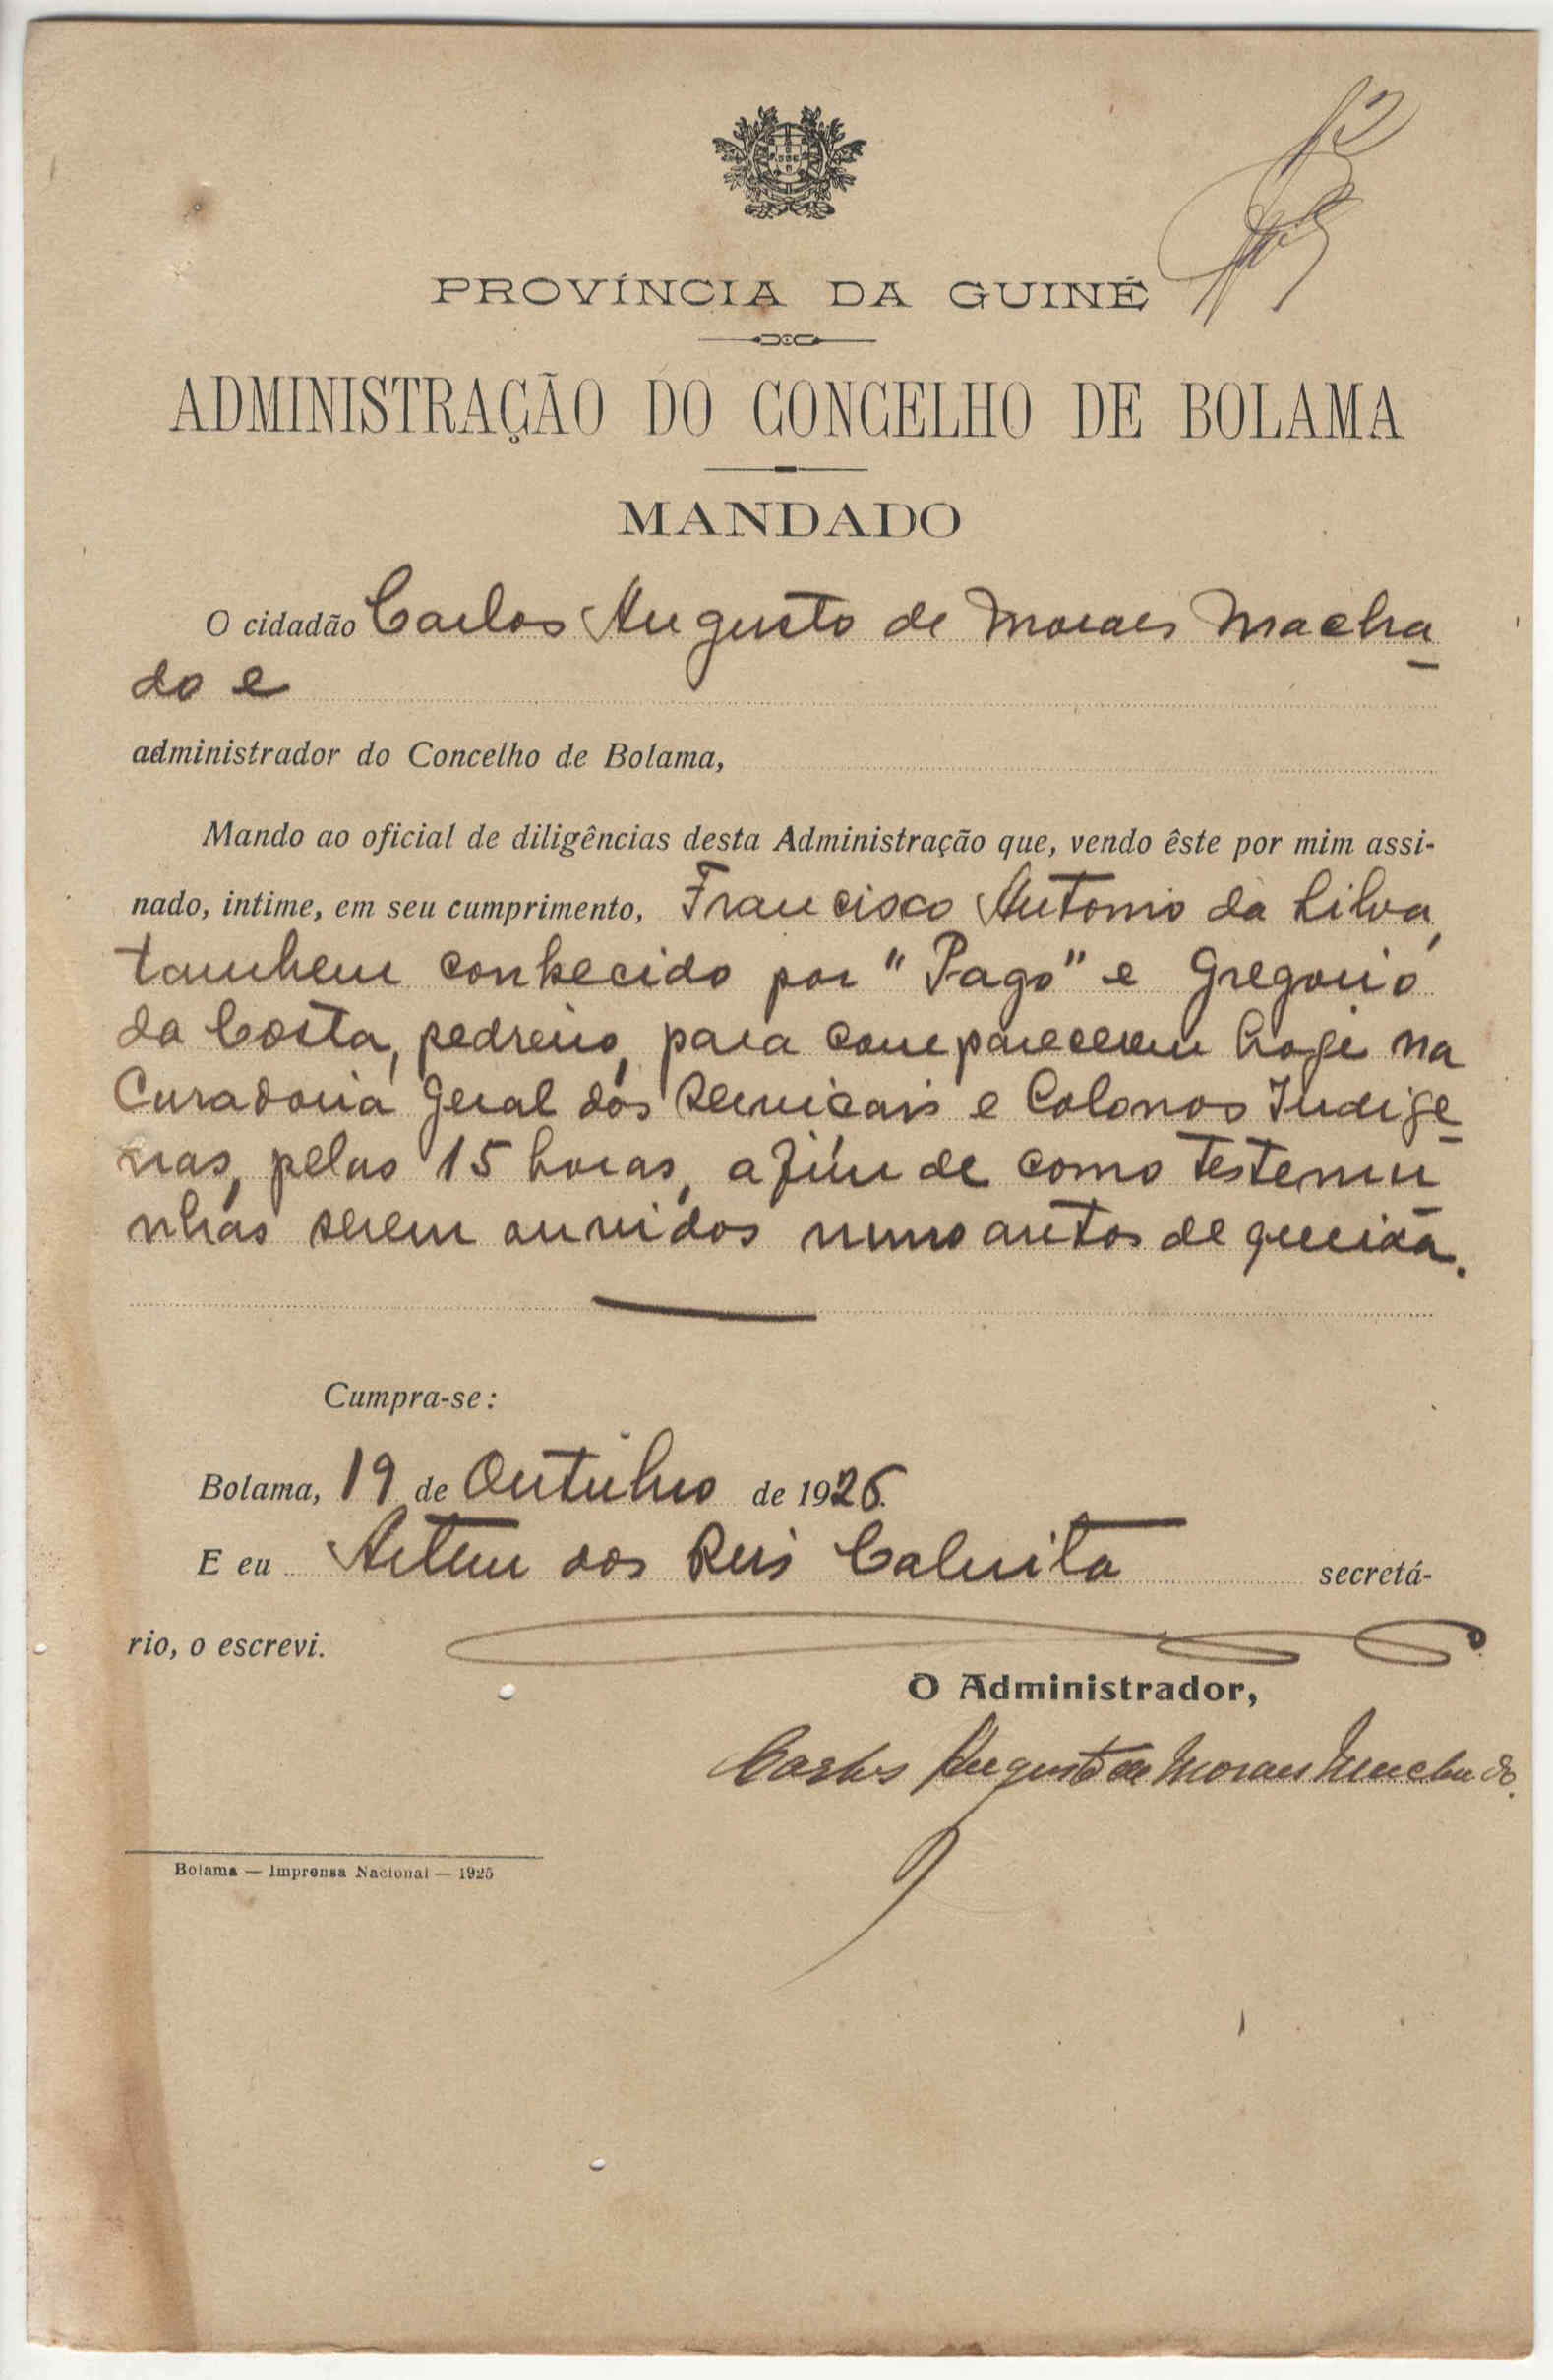 PROVÍNCIA DA GUINÉ
ADMINISTRAÇÃO DO CONCELHO DE BOLAMA
MANDADO
O cidadão Carlos Augusto de Moraes Macha-
do e
administrador do Concelho de Bolama,
Mando ao oficial de diligências desta Administração que, vendo êste por mim assi-
nado, intime, em seu cumprimento, Francisco Antonio da Silva,
tambem conhecido por "Pago" e Gregorio
da Costa, pedreiro, para comparecerem hoje na
Curadoria Geral dos Serviçais e Colonos Indige-
nas, pelas 15 horas, afim de como testemu
nhas serem ouvidos nuns autos de queixa.
Cumpra-se:
Bolama, 19 de Outubro de 1926.
E eu Artur dos Reis secretá-
rio, o escrevi.
O Administrador,
Carlos Augusto de Moraes Machado.
Bolama — Imprensa Nacional — 1925